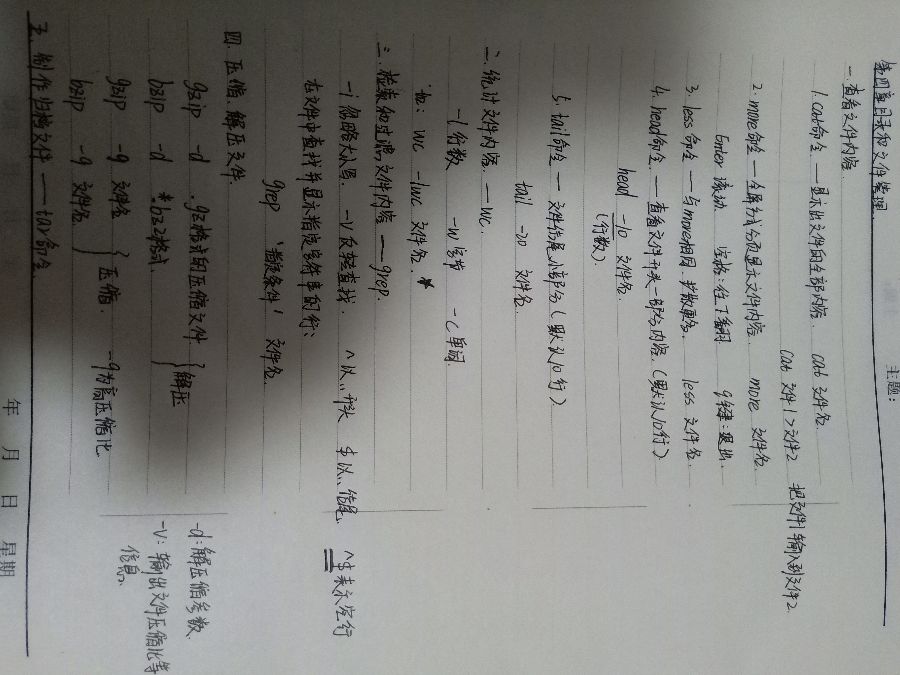 主题:
第四章目录和文件管理
一.查看文件内容.
1.cat命令 —— 显示出文件的全部内容. cat 文件名
cat 文件1>文件2 把文件1输入到文件2.
2.more命令 — 全屏方式分页显示文件内容. more 文件名
Enter 滚动 空格:往下翻 q键:退出.
3. less 命令 —— 与more相同,扩散更多. less 文件名.
4. head命令. —— 查看文件开头一部分内容.(默认10行)
head -10 文件名.
(行数).
5. tail命令 —— 文件结尾小部分(默认10行)
tail -20 文件名.
二.统计文件内容. —— wc.
-l 行数 -w 字节 -c 单词.
如: wc -lwc 文件名.*
三.检索和过滤文件内容 —— grep.
-i 忽略大小写. -v 反转查找. ^以...开头 $以...结尾 ^$表示空行
在文件中查找并显示指定字符串的行:
grep '指定条件' 文件名.
四.压缩.解压文件.
gzip -d .gz格式的压缩文件 } 解压
bzip -d *.bz2格式.
-d:解压缩参数.
-v:输出文件压缩比等信息.
gzip -9 文件名 } 压缩. -9为高压缩比
bzip -9 文件名
五.制作归档文件 —— tar命令
年 月 日 星期